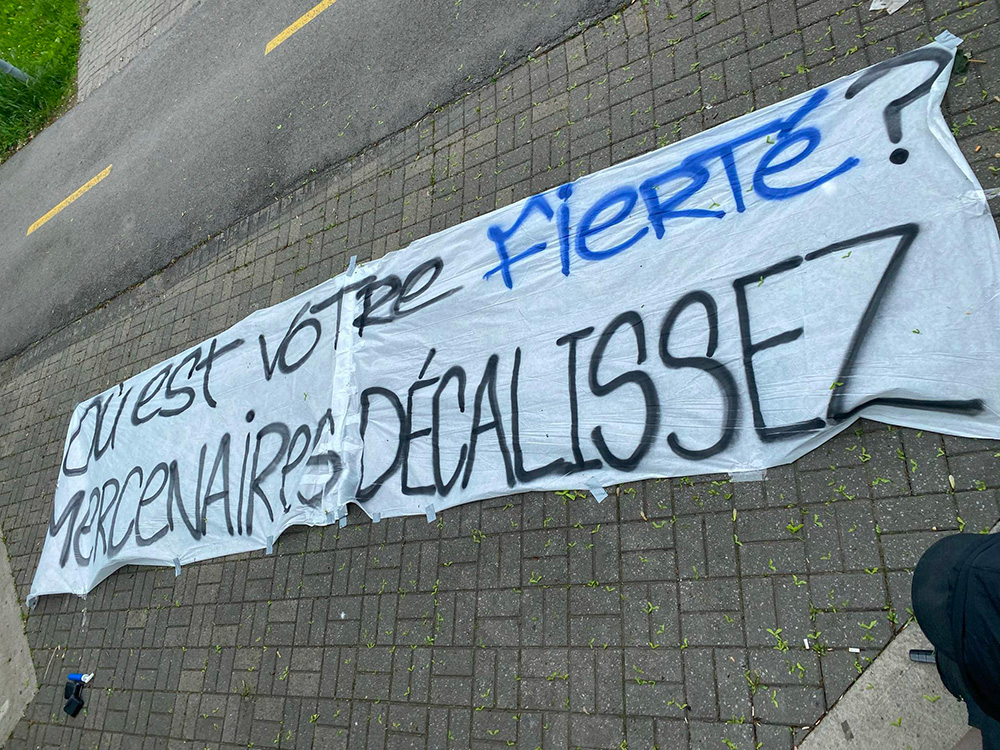 OÙ EST VOTRE FIERTÉ?
MERCENAIRES DÉCALISSEZ